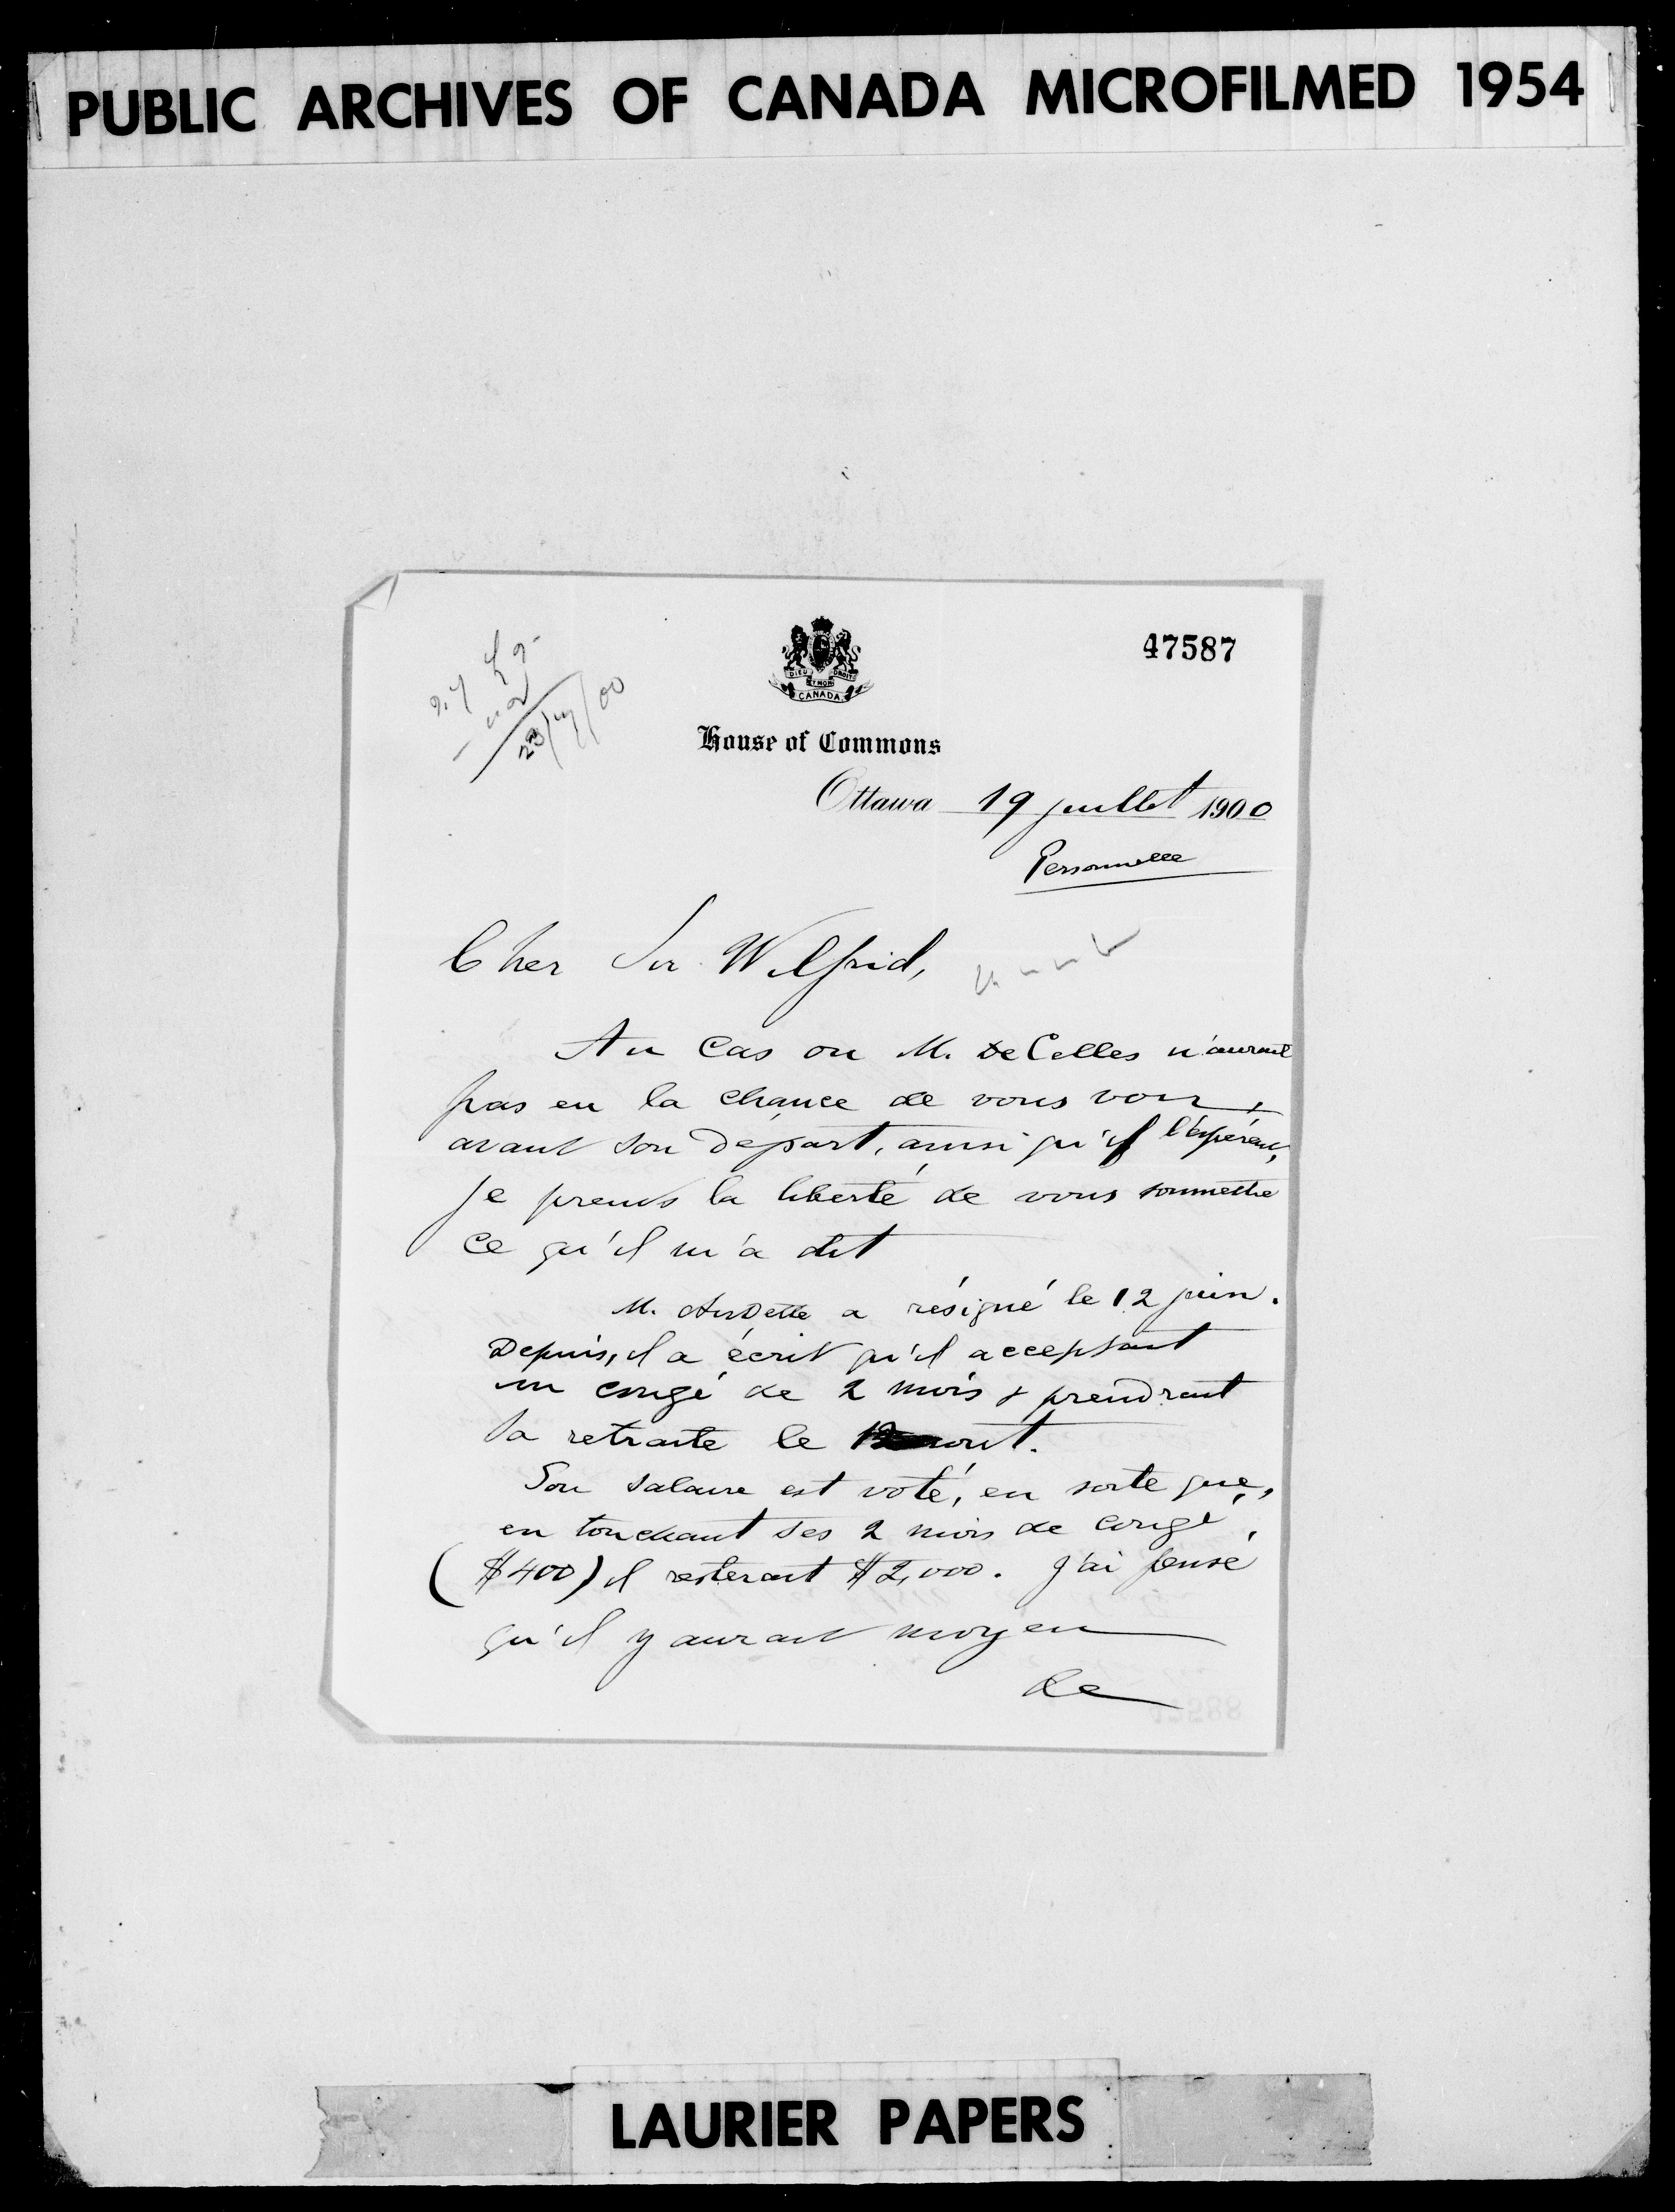 PUBLIC ARCHIVES OF CANADA MICROFILMED 1954
47587
DIEU ET MON DROIT
CANADA
23/7/00
House of Commons
Ottawa 19 juillet 1900
Personnelle
Cher Sir Wilfrid,
Au cas ou M. DeCelles n'aurait
pas eu la chance de vous voir,
avant son départ, ainsi qu'il l'espérait,
je prends la liberté de vous soumettre
ce qu'il m'a dit
M. Audette a résigné le 12 juin.
Depuis, il a écrit qu'il acceptait
un congé de 2 mois & prendrait
sa retraite le 12 aout.
Son salaire est voté, en sorte que,
en touchant ses 2 mois de congé,
($400) il resterait $2,000. J'ai pensé
qu'il y aurait moyen
de
LAURIER PAPERS